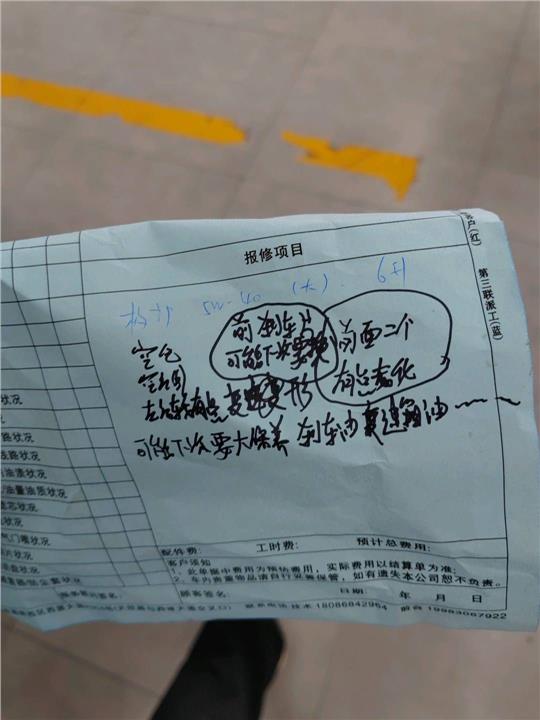 报修项目
户(红)
第三联派工(蓝)
5W-40 (大) 6升
前刹车片
可能下次要换
前面二个
有点老化
空气
左后轮有点 变形
可能下次要大保养 刹车油 变速箱油
状况
路状况
油质状况
油量油质状况
芯状况
状况
气门嘴状况
片状况
盘状况
配件费: 工时费: 预计总费用:
客户须知
1、此单据中费用为预估费用,实际费用以结算单为准;
2、车内贵重物品请自行妥善保管,如有遗失本公司恕不负责。
顾客签名: 日期: 年 月 日
技术18086842964 前台19983067922